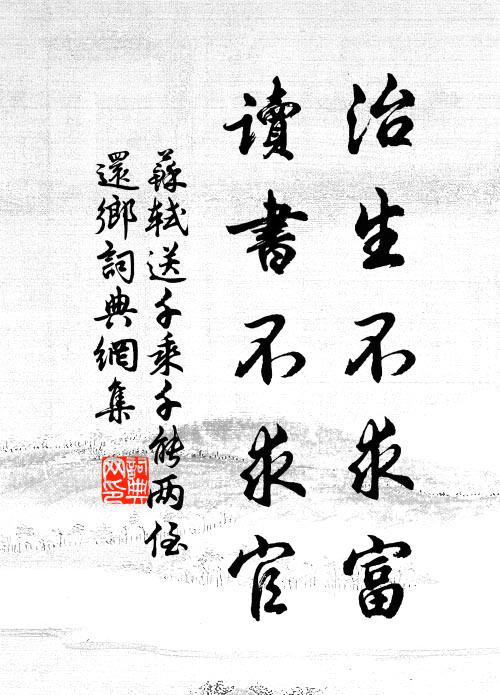 治生不求富
讀書不求官
蘇軾送千乘千能兩侄
還鄉詞典網集
詞典網印